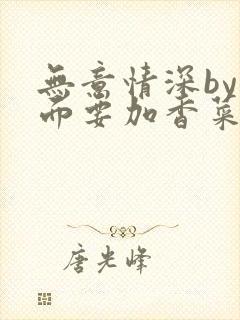 無意情深by
而要加香菜
唐光峰